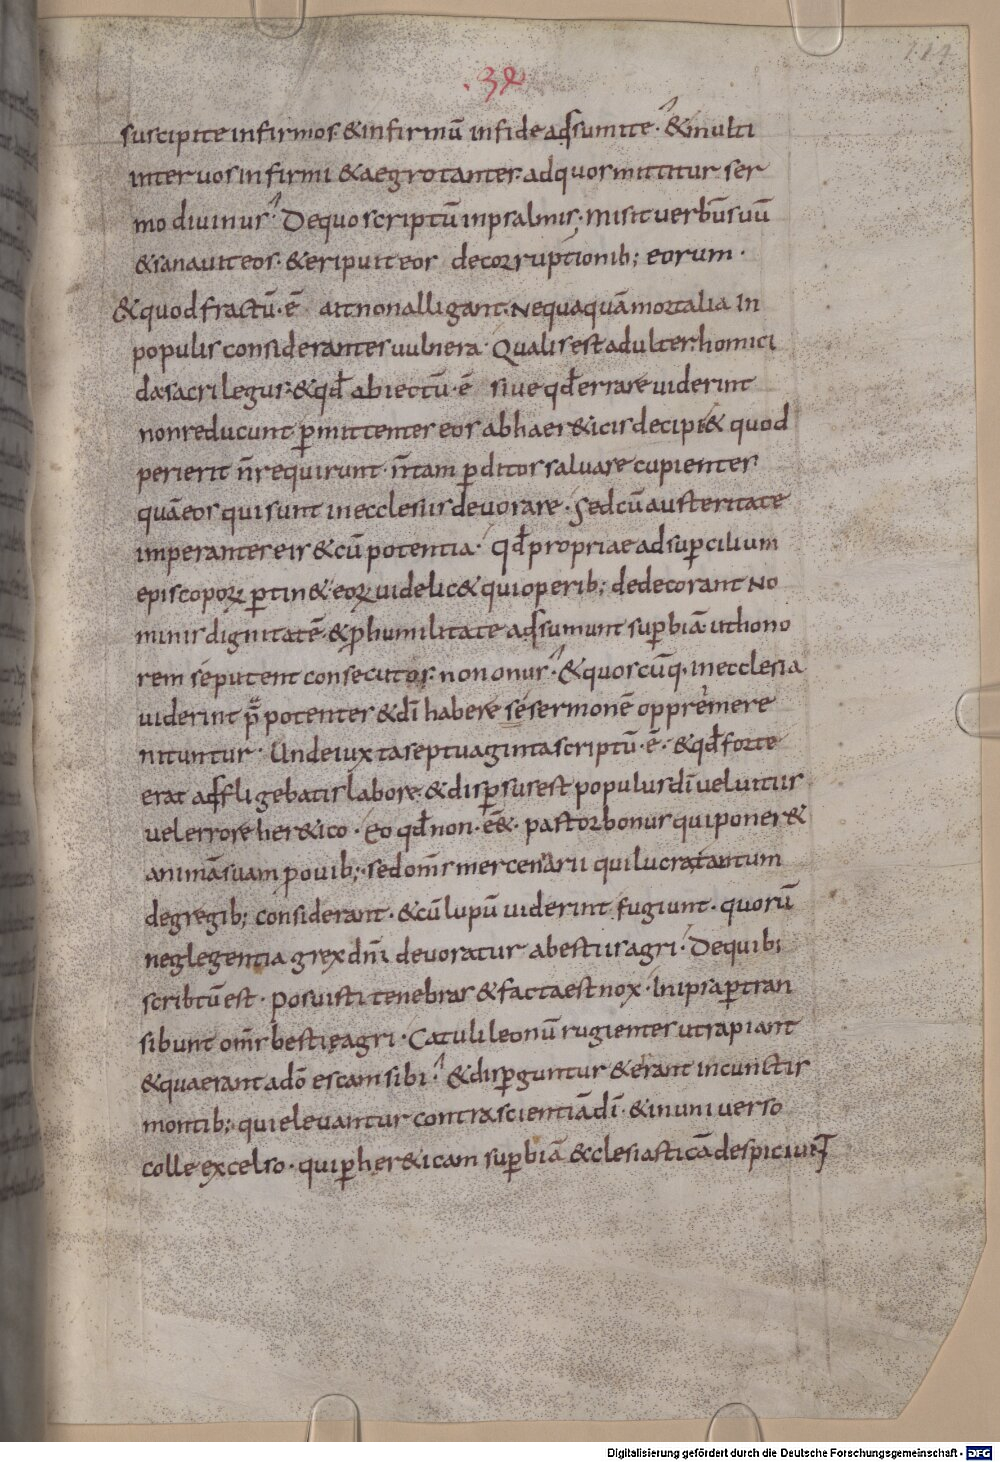 114
.34
suscipite infirmos· & infirmū in fide adsumite· & multi
inter uos infirmi & aegrotantes· ad quos mittitur ser
mo diuinus· De quo scriptū in psalmis· misit uerbū suū
& sanauit eos· & eripuit eos de corruptionib; eorum·
& quod fractū·ē· ait non alligant· Nequaquā mortalia In
populis considerantes uulnera· Qualis est adulter· homici
da sacrilegus· & qđ abiectū·ē· siue qđ errare uiderint
non reducunt ꝑmittentes eos ab haer&icis decipi· & quod
perierit n̄ requirunt· n̄ tam ꝑditos saluare cupientes
quā eos qui sunt in ecclesiis deuorare· Sed cū austeritate
imperantes eis & cū potentia· qđ propriae ad suꝑcilium
episcoporꝝ ꝑtin&· eorꝝ uidelic& qui operib; dedecorant No
minis dignitatē· & ꝓ humilitate adsumunt suꝑbiā· ut hono
rem se putent consecutos· non onus· & quoscūq· in ecclesia
uiderint p̄potentes & dī habere sermonē opprimere
nituntur· Unde iuxta septuaginta scriptū·ē·· & qđ forte
erat adfligebatis labore· & disꝑsus est populus dī uel uitiis
uel errore her&ico· Eo qđ non·ēē· pastor bonus qui poner&
animā suam ꝓ ouib;· sed om̄s mercenarii qui lucra tantum
de gregib; considerant· & cū lupū uiderint fugiunt· quorū
neglegentia grex dn̄i deuoratur a bestiis agri· De quibꝰ
scribtū est· Posuisti tenebras & facta est nox· In ipsa ꝑtran
sibunt om̄s bestię agri· Catuli leonū rugientes ut rapiant
& quaerant a dō escam sibi· & disꝑguntur & errant in cunctis
montib; qui eleuantur contra scientiā dī· & in uniuerso
colle excelso· qui ꝑ her&icam suꝑbiā &clesiasticā despiciunt
Digitalisierung gefördert durch die Deutsche Forschungsgemeinschaft - DFG